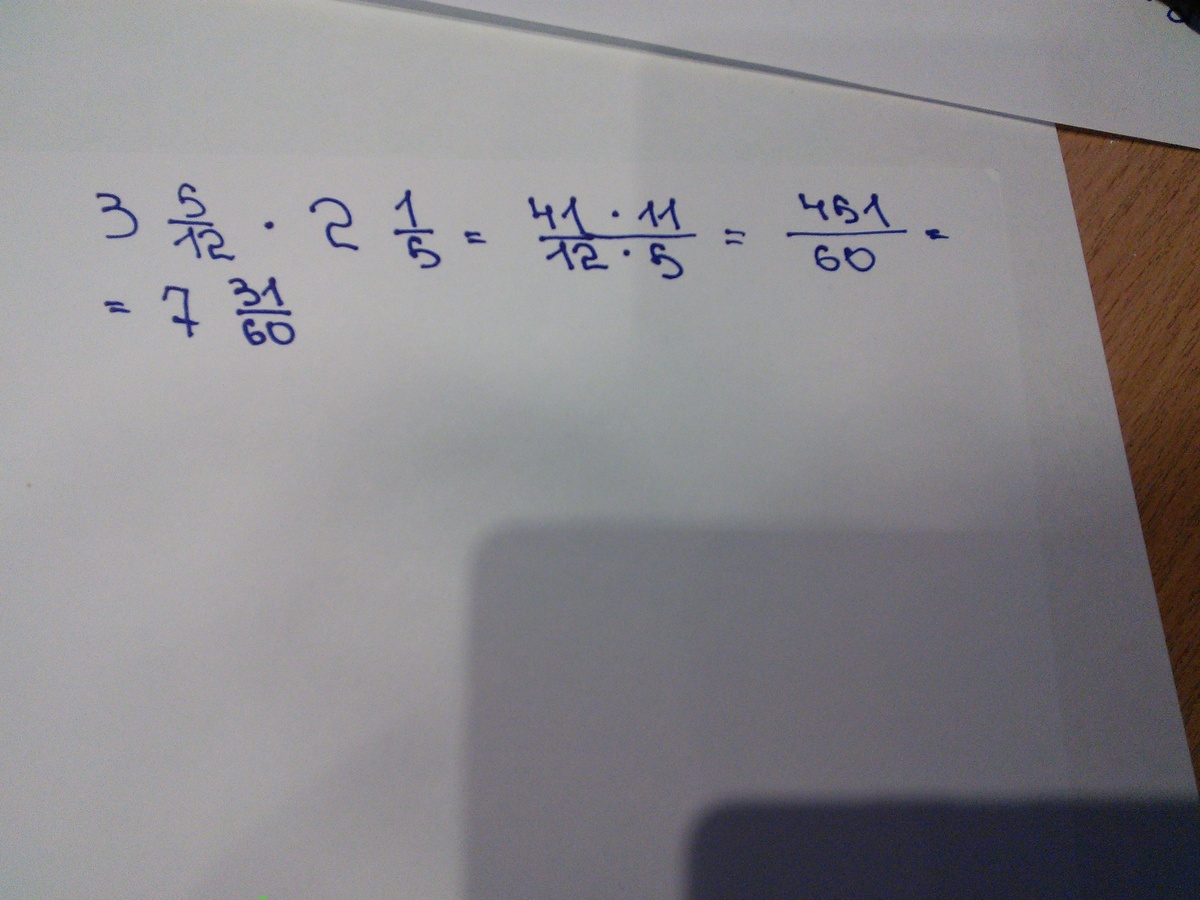 3 5/12 · 2 1/5 = 41 · 11 / 12 · 5 = 451/60 =
= 7 31/60